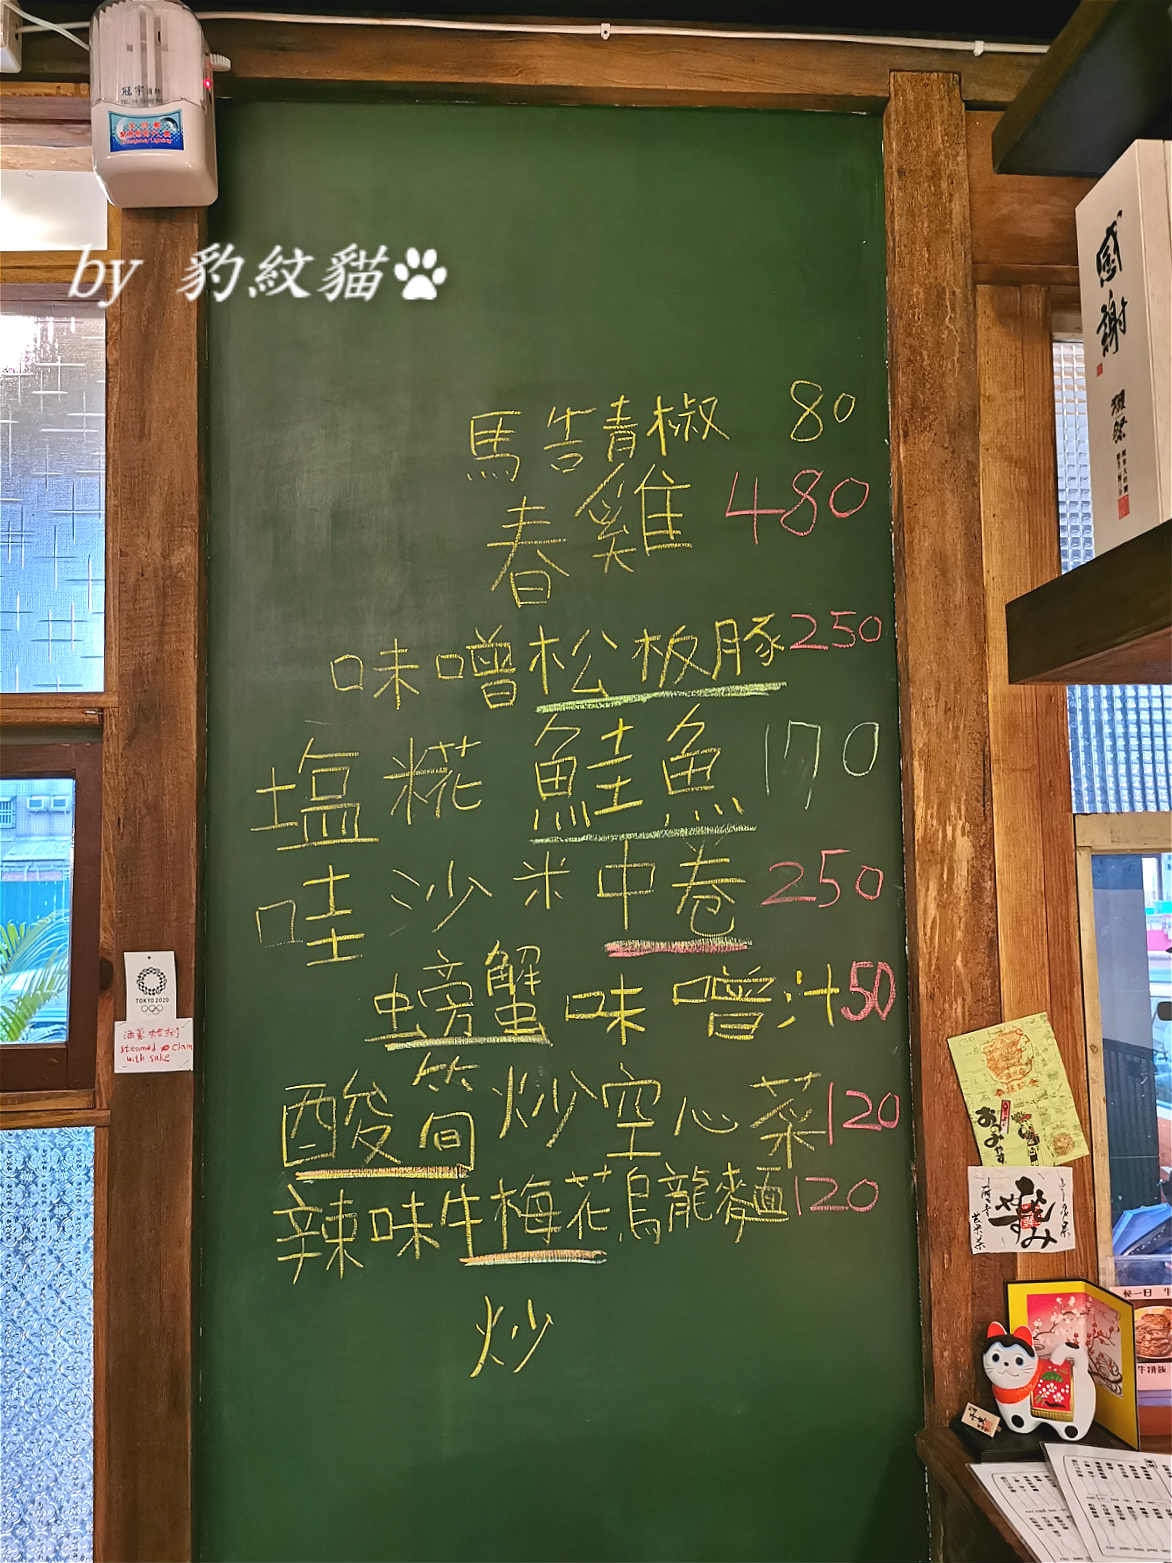 by 豹紋貓
馬告青椒 80
春雞 480
味噌松板豚 250
塩糀 鮭魚 170
哇沙米中卷 250
螃蟹味噌汁 50
酸筍炒空心菜 120
辣味牛梅花烏龍麵 120
炒
感謝
TOKYO 2020
steamed clam
with sake